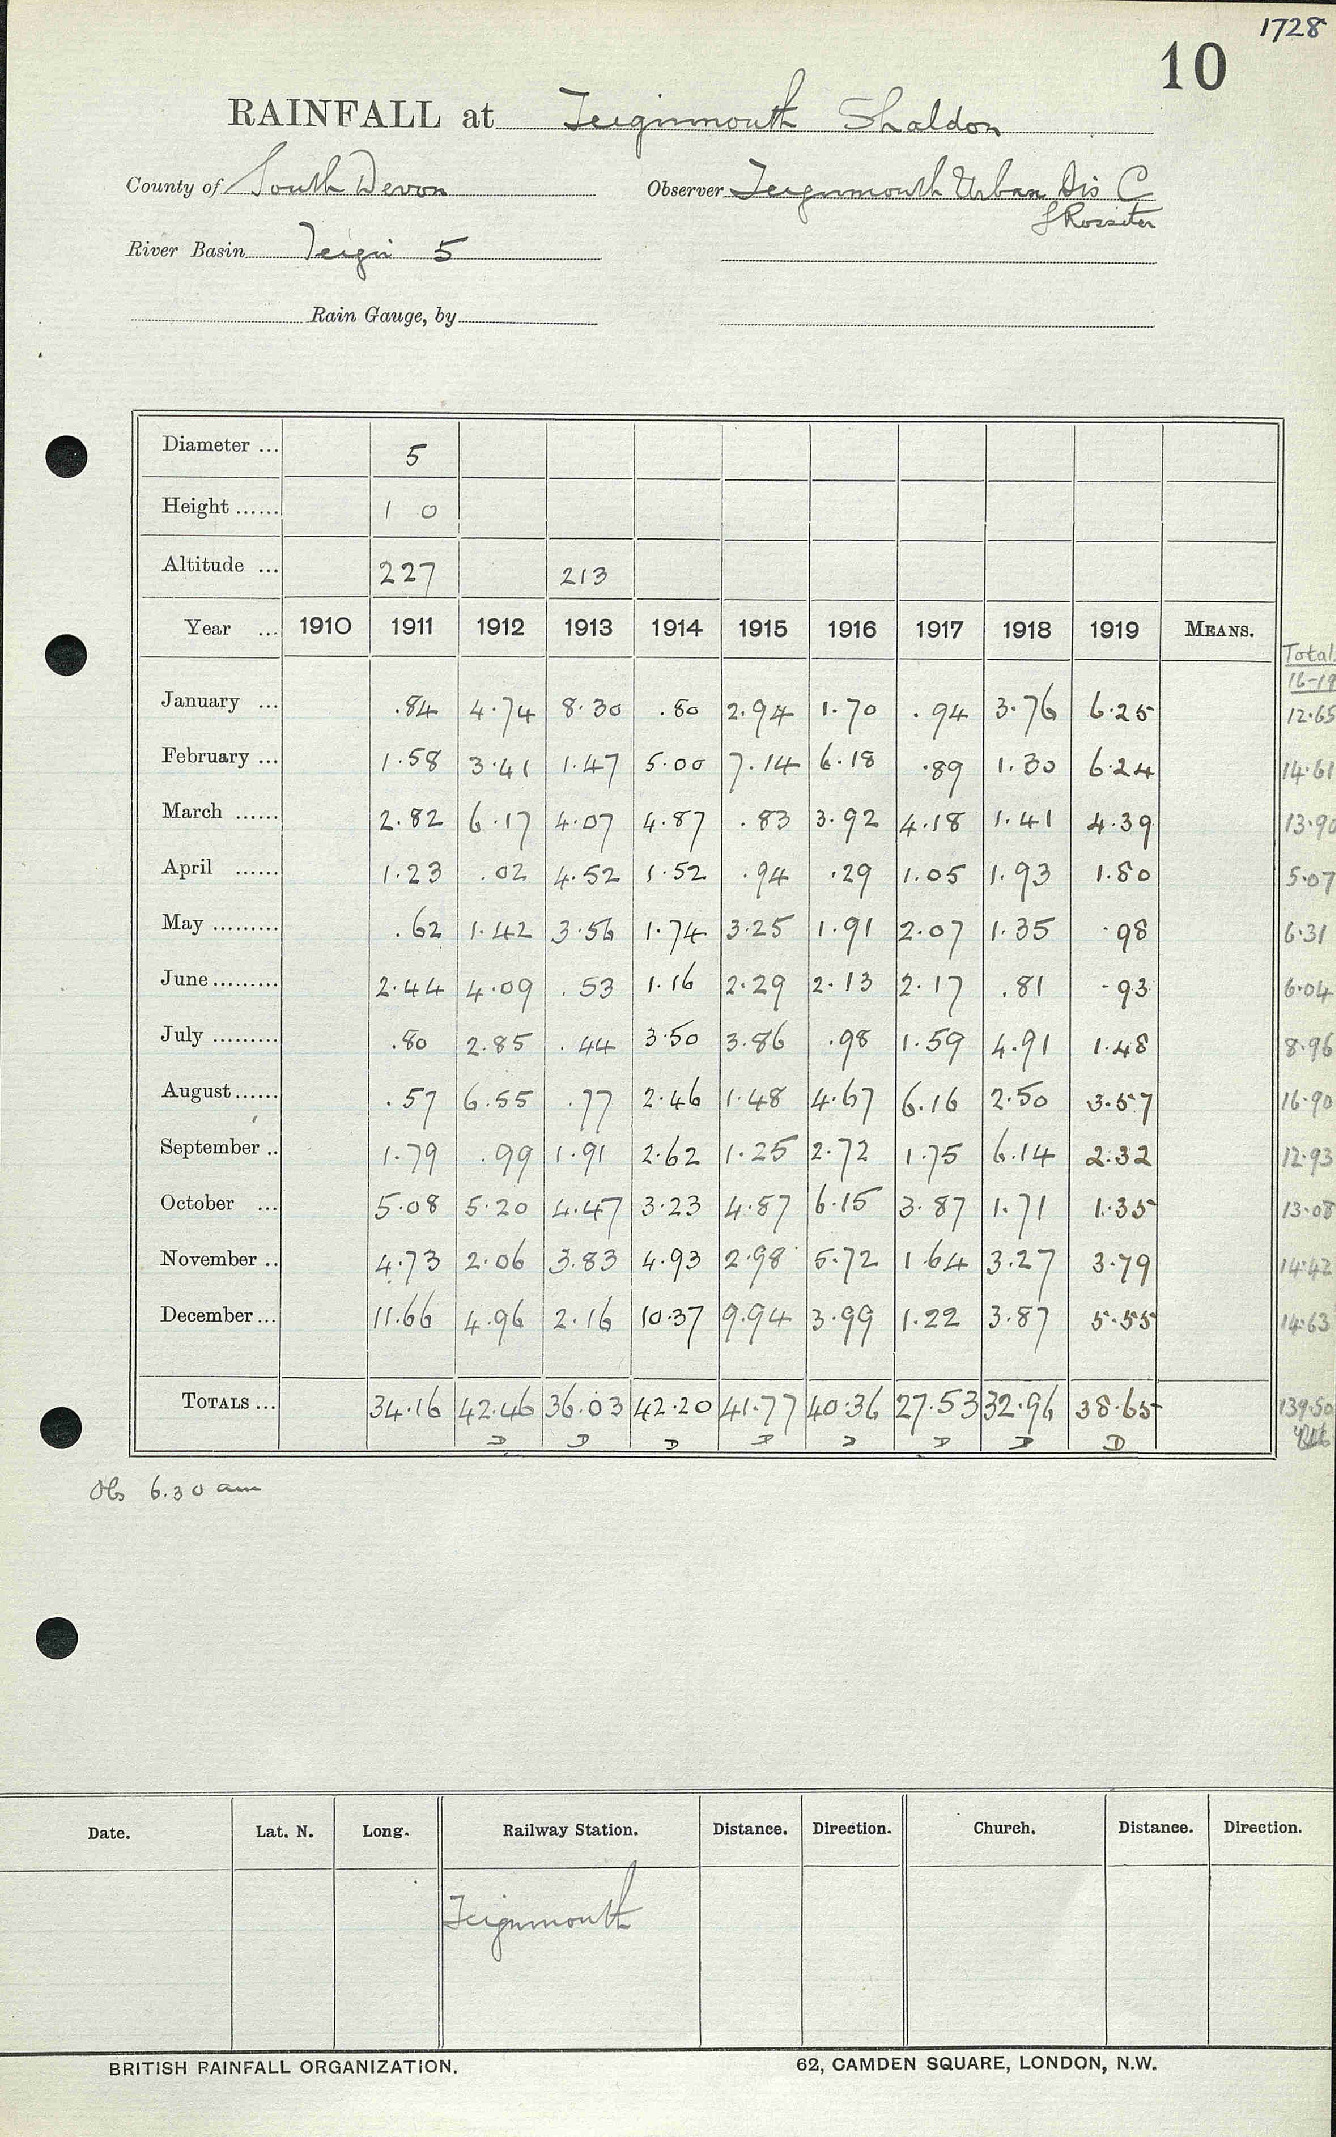 1728
10
RAINFALL at Teignmouth Shaldon
County of South Devon Observer Teignmouth Urban Dis C
J Rossiter
River Basin Teign 5
Rain Gauge, by
Diameter ... 5
Height ...... 1 0
Altitude ... 227 213
Year ... 1910 1911 1912 1913 1914 1915 1916 1917 1918 1919 MEANS. Total
16-19
January ... .84 4.74 8.30 .80 2.94 1.70 .94 3.76 6.25 12.65
February ... 1.58 3.41 1.47 5.00 7.14 6.18 .89 1.30 6.24 14.61
March ...... 2.82 6.17 4.07 4.87 .83 3.92 4.18 1.41 4.39 13.90
April ...... 1.23 .02 4.52 1.52 .94 .29 1.05 1.93 1.80 5.07
May ......... .62 1.42 3.56 1.74 3.25 1.91 2.07 1.35 .98 6.31
June ......... 2.44 4.09 .53 1.16 2.29 2.13 2.17 .81 .93 6.04
July ......... .80 2.85 .44 3.50 3.86 .98 1.59 4.91 1.48 8.96
August ...... .57 6.55 .77 2.46 1.48 4.67 6.16 2.50 3.57 16.90
September .. 1.79 .99 1.91 2.62 1.25 2.72 1.75 6.14 2.32 12.93
October ... 5.08 5.20 4.47 3.23 4.87 6.15 3.87 1.71 1.35 13.08
November .. 4.73 2.06 3.83 4.93 2.98 5.72 1.64 3.27 3.79 14.42
December ... 11.66 4.96 2.16 10.37 9.94 3.99 1.22 3.87 5.55 14.63
TOTALS ... 34.16 42.46 36.03 42.20 41.77 40.36 27.53 32.96 38.65 139.50
D D D D D D D D
Obs 6.30 am
Date. Lat. N. Long. Railway Station. Distance. Direction. Church. Distance. Direction.
Teignmouth
BRITISH RAINFALL ORGANIZATION. 62, CAMDEN SQUARE, LONDON, N.W.